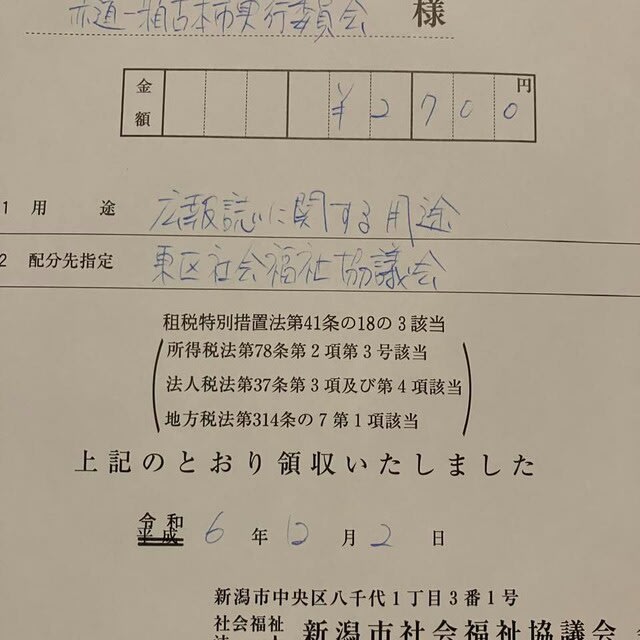 赤道一箱古本市実行委員会 様
金額 ¥2700円
1 用 途 広報誌に関する用途
2 配分先指定 東区社会福祉協議会
租税特別措置法第41条の18の3該当
所得税法第78条第2項第3号該当
法人税法第37条第3項及び第4項該当
地方税法第314条の7第1項該当
上記のとおり領収いたしました
令和
平成 6 年 12 月 2 日
新潟市中央区八千代1丁目3番1号
社会福祉
法 人 新潟市社会福祉協議会